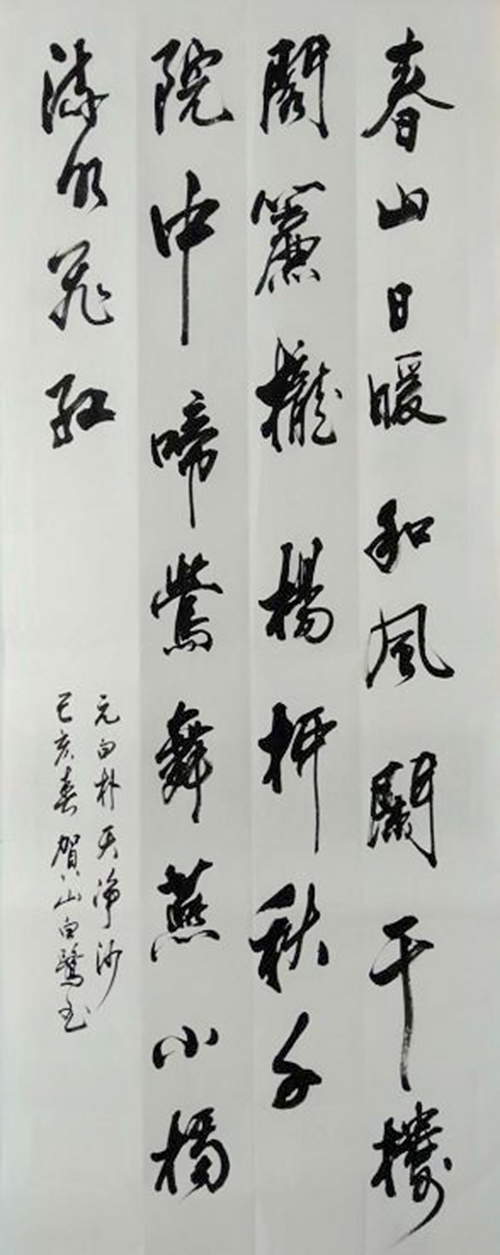 春山日暖和風闌干樓
閣簾櫳楊柳秋千
院中啼鶯舞燕小橋
流水飛紅
元白朴天净沙
己亥春賀山白鷺书